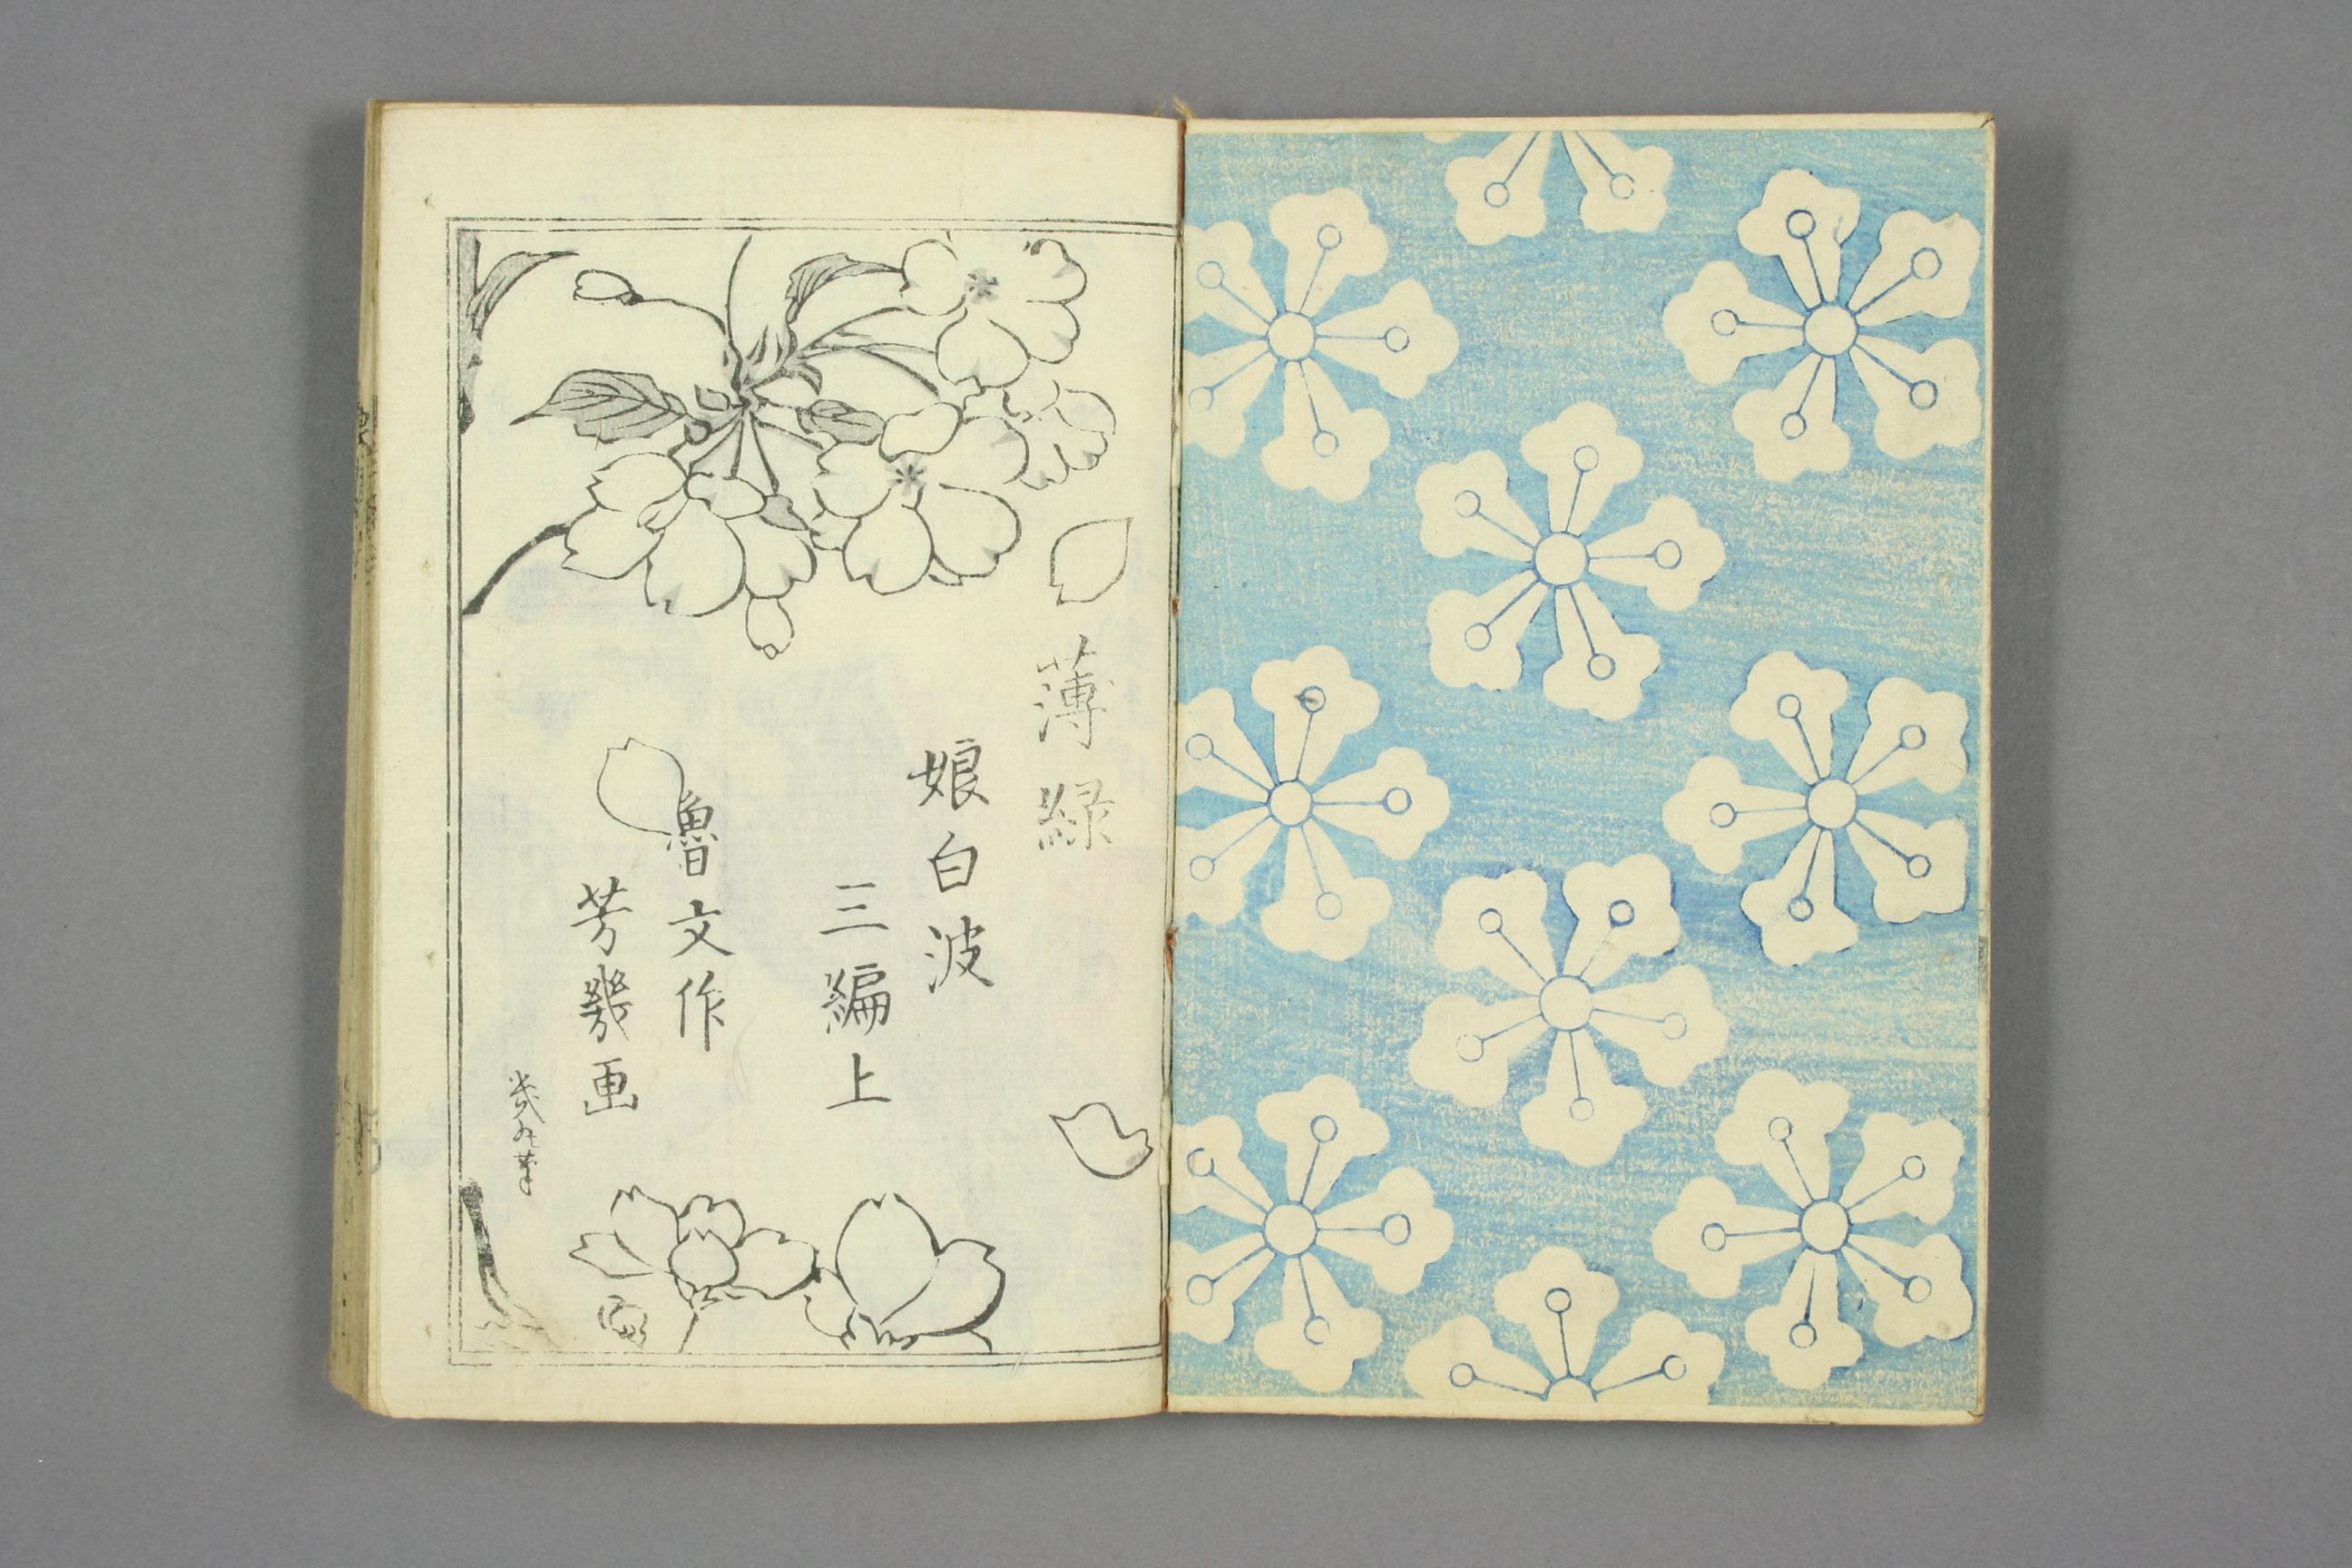 薄緑
娘白波
三編上
魯文作
芳幾画